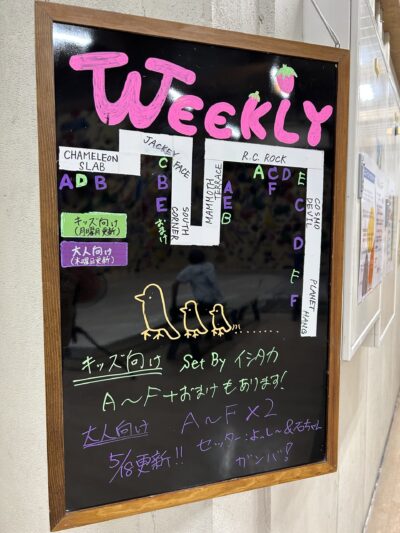 WEEKLY
CHAMELEON
SLAB
ADB
JACKEY FACE
C
B
E
おまけ
SOUTH
CORNER
MAMMOTH
TERRACE
A
E
B
R.C. ROCK
A C D E
F
C
D
F
F
COSMO
DEVIL
PLANET
HANG
キッズ向け
(月曜月更新)
大人向け
(木曜日更新)
キッズ向け Set By イシタカ
A～F+おまけもあります!
大人向け A～F×2
5/18更新!! セッター:よっし～&石ちゃん
ガンバ!